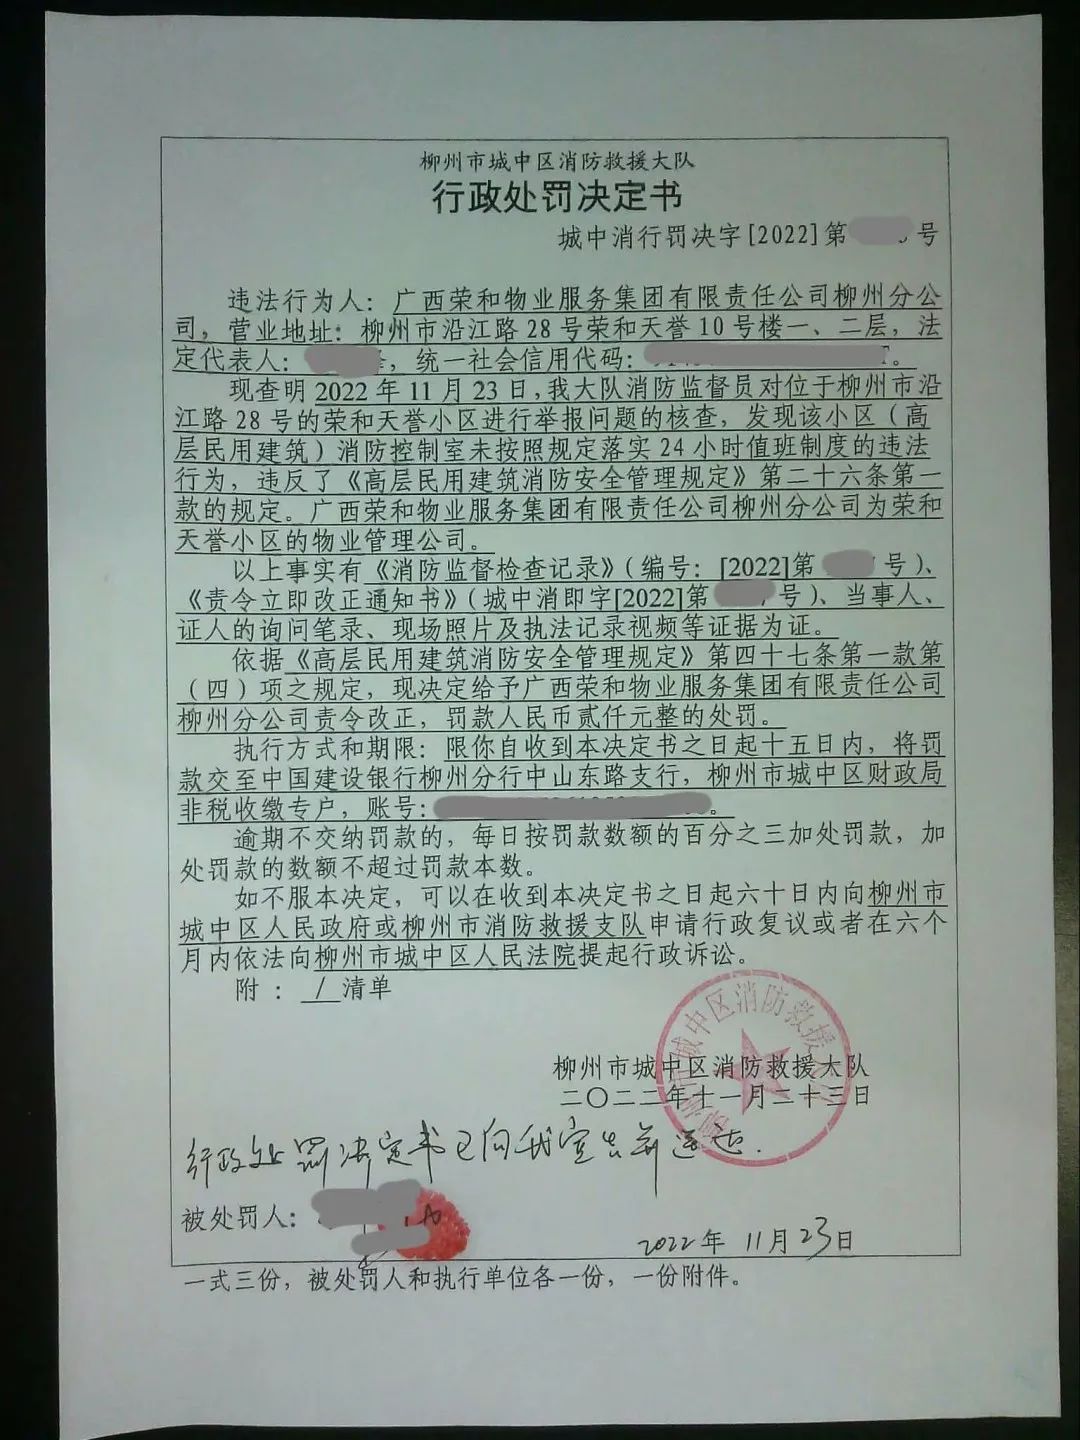 柳州市城中区消防救援大队
行政处罚决定书
城中消行罚决字[2022]第 号
违法行为人：广西荣和物业服务集团有限责任公司柳州分公
司，营业地址：柳州市沿江路28号荣和天誉10号楼一、二层，法
定代表人： ，统一社会信用代码： 。
现查明2022年11月23日，我大队消防监督员对位于柳州市沿
江路28号的荣和天誉小区进行举报问题的核查，发现该小区（高
层民用建筑）消防控制室未按照规定落实24小时值班制度的违法
行为，违反了《高层民用建筑消防安全管理规定》第二十六条第一
款的规定。广西荣和物业服务集团有限责任公司柳州分公司为荣和
天誉小区的物业管理公司。
以上事实有《消防监督检查记录》（编号：[2022]第 号）、
《责令立即改正通知书》（城中消即字[2022]第 号）、当事人、
证人的询问笔录、现场照片及执法记录视频等证据为证。
依据《高层民用建筑消防安全管理规定》第四十七条第一款第
（四）项之规定，现决定给予广西荣和物业服务集团有限责任公司
柳州分公司责令改正，罚款人民币贰仟元整的处罚。
执行方式和期限：限你自收到本决定书之日起十五日内，将罚
款交至中国建设银行柳州分行中山东路支行，柳州市城中区财政局
非税收缴专户，账号： 。
逾期不交纳罚款的，每日按罚款数额的百分之三加处罚款，加
处罚款的数额不超过罚款本数。
如不服本决定，可以在收到本决定书之日起六十日内向柳州市
城中区人民政府或柳州市消防救援支队申请行政复议或者在六个
月内依法向柳州市城中区人民法院提起行政诉讼。
附：/清单
柳州市城中区消防救援大队
柳州市城中区消防救援大队
二〇二二年十一月二十三日
行政处罚决定书已向我宣告并送达.
被处罚人：
2022年11月23日
一式三份，被处罚人和执行单位各一份，一份附件。